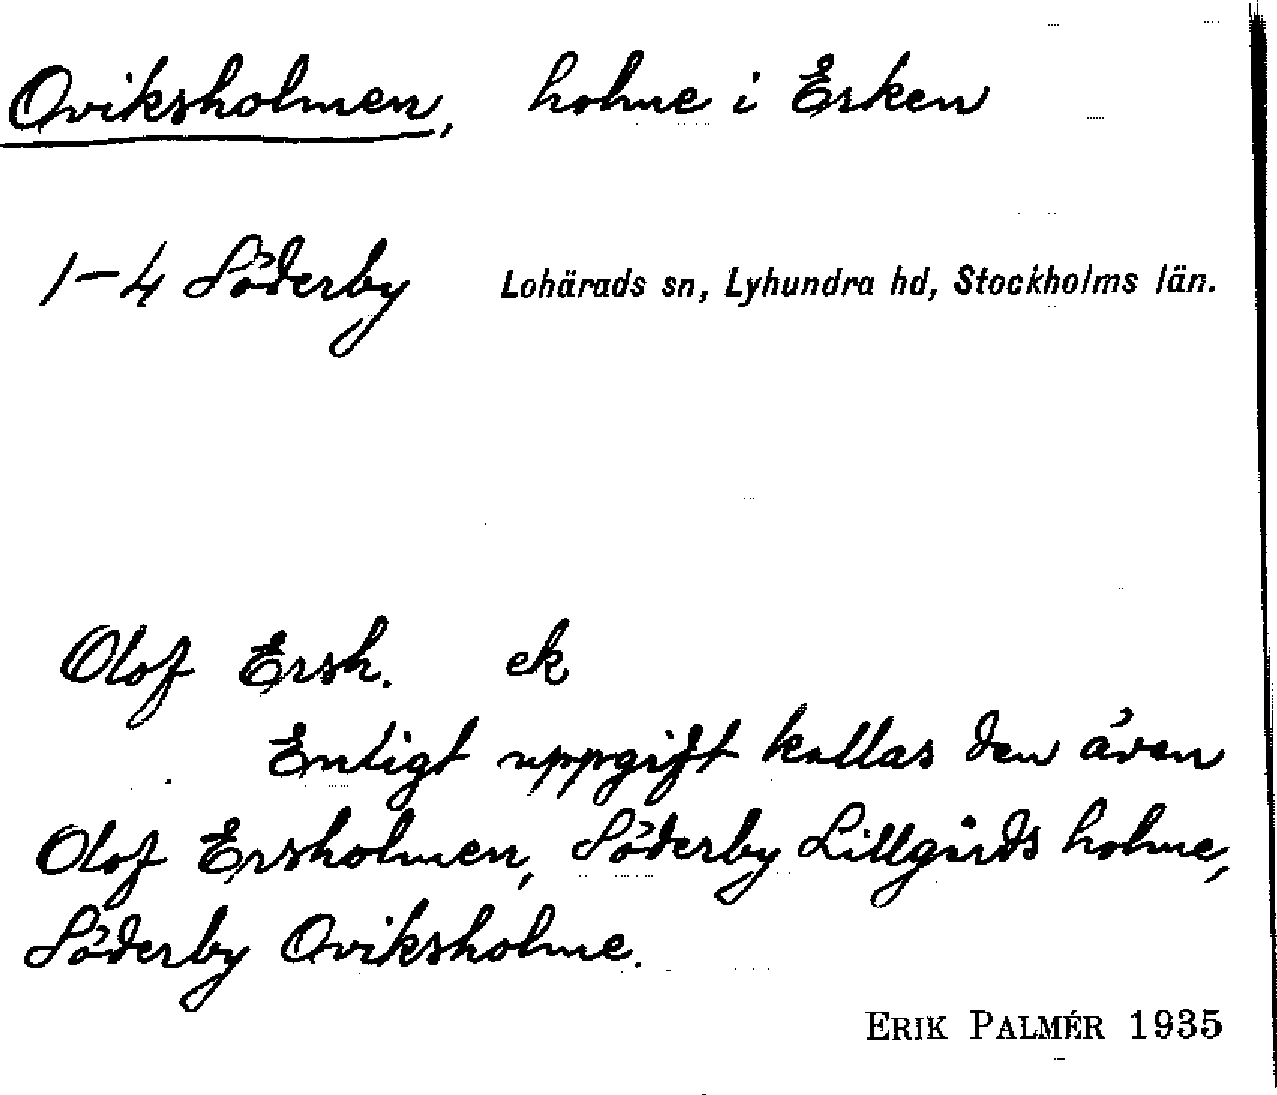 Oviksholmen, holme i Erken
1-4 Söderby Lohärads sn, Lyhundra hd, Stockholms län.
Olof Ersh. ek
Enligt uppgift kallas den även
Olof Ersholmen, Söderby Lillgårds holme,
Söderby Oviksholme.
ERIK PALMÉR 1935